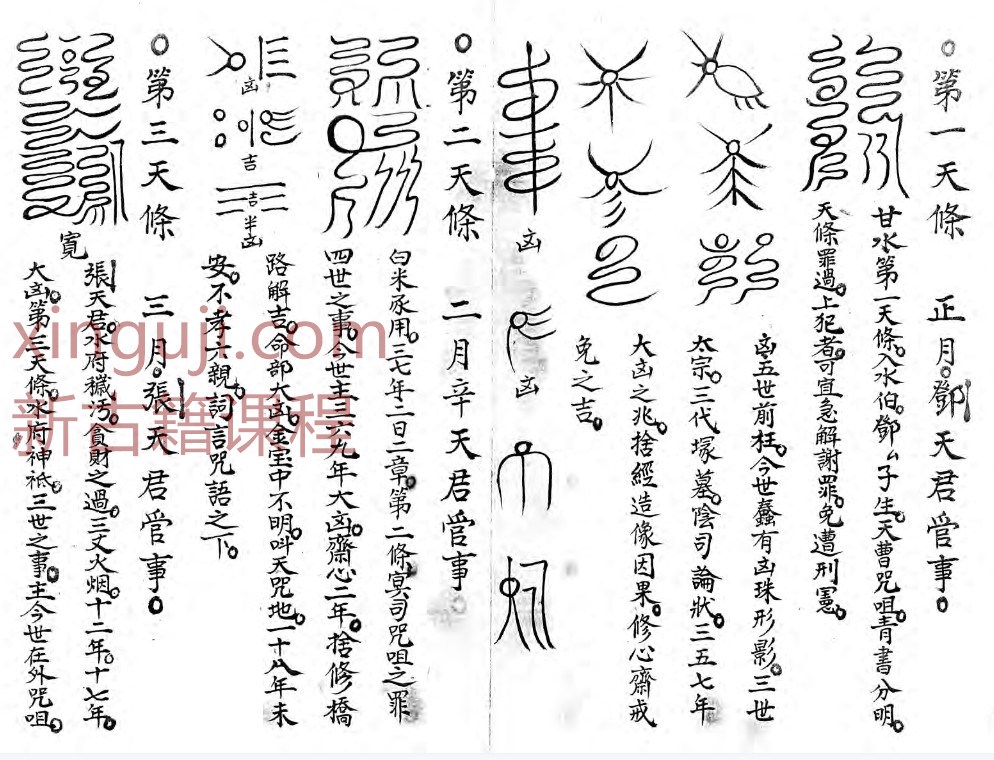 〇第一天條　正月。鄧天君管事。
甘水第一天條。入水伯。鄧厶子生。天曹咒咀。青書分明。
天條罪過。上犯者。可宜急解謝罪。免遭刑憲。
凶五世前枉。今世蠢有凶珠形影。三世
太宗。三代塚墓。陰司論狀。三五七年
大凶之兆。捨經造像因果。修心齋戒
免之吉。
凶
凶
〇第二天條　二月辛天君管事。
白米承用。三七年二日二章。第二條冥司咒咀之罪
四世之事。今世主二六九年大凶。齋心二年。捨修橋
路解吉。命部大凶。金宝中不明。叫天咒地。一十八年未
安。不孝六親。詞言咒語之下。
凶
吉
吉
半凶
〇第三天條　三月。張天君管事。
寬
張天君。水府穢污。貪財之過。三丈火烟。十二年。十七年。
大凶。第三天條。水府神祇。三世之事。主今世在外咒咀。
xinguji.com
新古籍课程